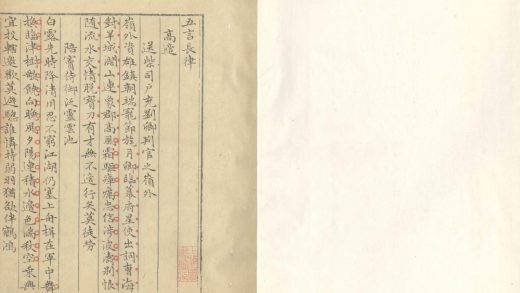 五言長律
高適
送柴司戶充劉卿判官之嶺外
嶺外資雄鎮朝端寵節旄月卿臨幕府星使出詞曹海
對羊城濶山連象郡高風霜驅瘴癘忠信涉波濤別恨
隨流水交情脫寶刀有才無不適行矣莫徒勞
陪竇侍御泛靈雲池
白露先時降清川思不窮江湖仍塞上舟楫在軍中舞
換臨津樹歌饒向晚風夕陽連積水邊色滿秋空乘興
宜投轄邀歡莫避驄誰憐持弱羽猶欲伴鵷鴻